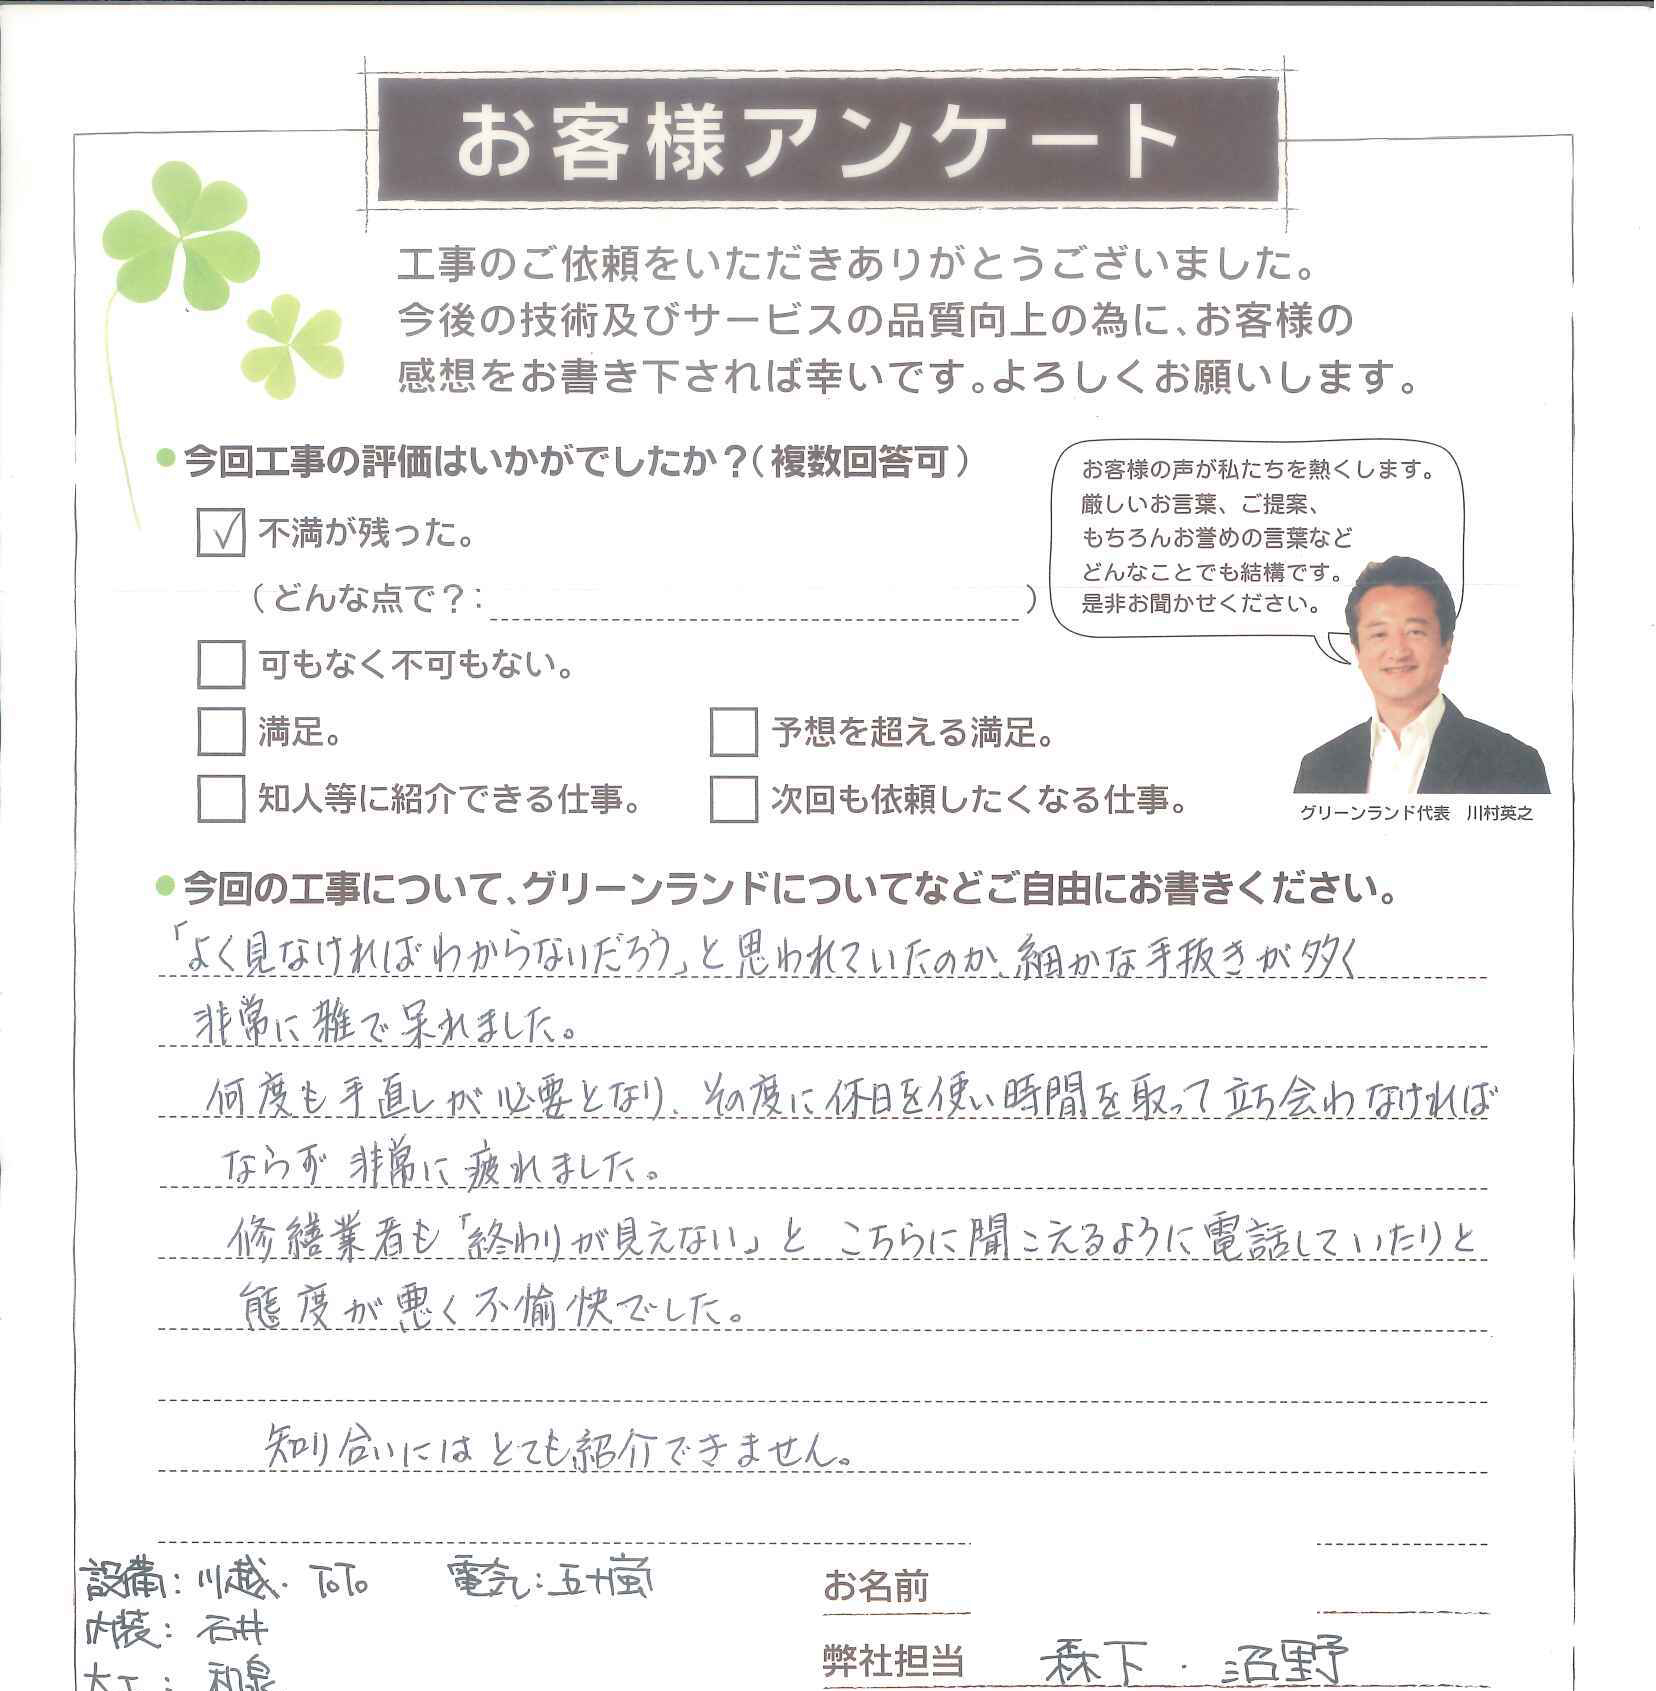 お客様アンケート
工事のご依頼をいただきありがとうございました。
今後の技術及びサービスの品質向上の為に、お客様の
感想をお書き下されば幸いです。よろしくお願いします。
●今回工事の評価はいかがでしたか？（複数回答可）
✓不満が残った。
（どんな点で？：　）
可もなく不可もない。
満足。
予想を超える満足。
知人等に紹介できる仕事。
次回も依頼したくなる仕事。
お客様の声が私たちを熱くします。
厳しいお言葉、ご提案、
もちろんお誉めの言葉など
どんなことでも結構です。
是非お聞かせください。
グリーンランド代表　川村英之
●今回の工事について、グリーンランドについてなどご自由にお書きください。
「よく見なければわからないだろう」と思われていたのか、細かな手抜きが多く
非常に雑で呆れました。
何度も手直しが必要となり、その度に休日を使い時間を取って立ち会わなければ
ならず非常に疲れました。
修繕業者も「終わりが見えない」と こちらに聞こえるように電話していたりと
態度が悪く不愉快でした。
知り合いにはとても紹介できません。
設備：川越．TOTO　電気：五十嵐
内装：石井
大工：和泉
お名前
弊社担当　森下．沼野